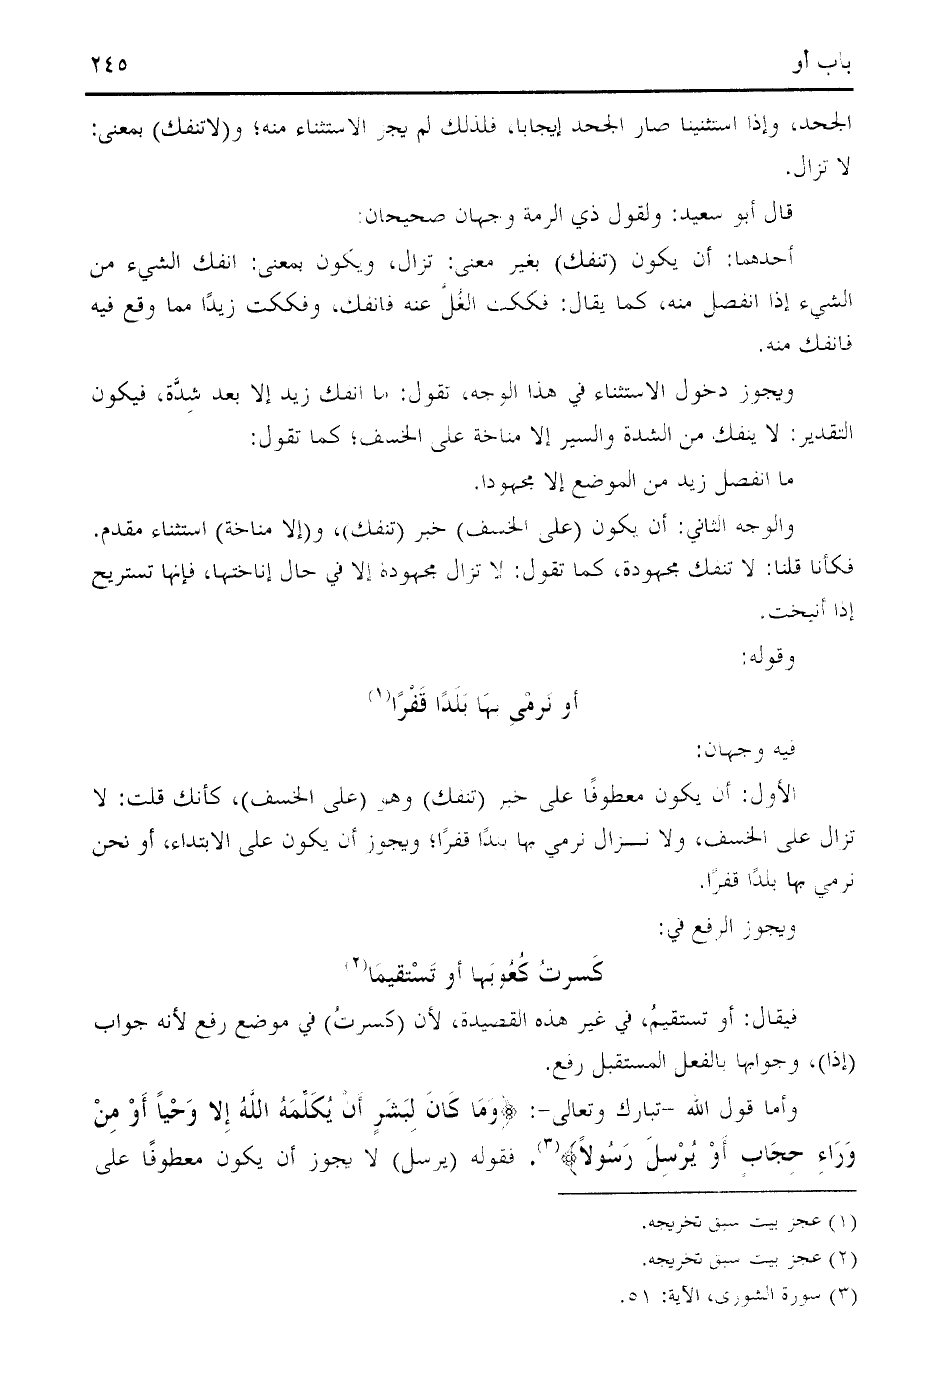 باب أو
٢٤٥
الجحد، وإذا استثنينا صار الجحد إيجابا، فلذلك لم يجز الاستثناء منه؛ و(لاتنفك) بمعنى:
لا تزال.
قال أبو سعيد: ولقول ذي الرمة وجهان صحيحان:
أحدهما: أن يكون (تنفك) بغير معنى: تزال، ويكون بمعنى: انفك الشيء من
الشيء إذا انفصل منه، كما يقال: فككت الغُلَّ عنه فانفك، وفككت زيدًا مما وقع فيه
فانفك منه.
ويجوز دخول الاستثناء في هذا الوجه، تقول: ما انفك زيد إلا بعد شِدَّة، فيكون
التقدير: لا ينفك من الشدة والسير إلا مناخة على الخسف؛ كما تقول:
ما انفصل زيد من الموضع إلا مجهودا.
والوجه الثاني: أن يكون (على الخسف) خبر (تنفك)، و(إلا مناخة) استثناء مقدم.
فكأنا قلنا: لا تنفك مجهودة، كما تقول: لا تزال مجهودة إلا في حال إناختها، فإنها تستريح
إذا أنيخت.
وقوله:
أو نَرمْي بهَا بَلَدًا قَفْرًا(١)
فيه وجهان:
الأول: أن يكون معطوفًا على خبر (تنفك) وهو (على الخسف)، كأنك قلت: لا
تزال على الخسف، ولا نـــزال نرمي بها بلدًا قفرًا؛ ويجوز أن يكون على الابتداء، أو نحن
نرمي بها بلدًا قفرًا.
ويجوز الرفع في:
كَسرتُ كُعُوبَها أو تَسْتقيمَا(٢)
فيقال: أو تستقيمُ، في غير هذه القصيدة، لأن (كسرتُ) في موضع رفع لأنه جواب
(إذا)، وجوابها بالفعل المستقبل رفع.
وأما قول الله -تبارك وتعالى-: ﴿وَمَا كَانَ لِبَشَرٍ أَنْ يُكَلِّمَهُ اللَّهُ إِلا وَحْياً أَوْ مِنْ
وَرَاءِ حِجَابٍ أَوْ يُرْسِلَ رَسُولاً﴾(٣). فقوله (يرسل) لا يجوز أن يكون معطوفًا على
(١) عجز بيت سبق تخريجه.
(٢) عجز بيت سبق تخريجه.
(٣) سورة الشورى، الآية: ٥١.